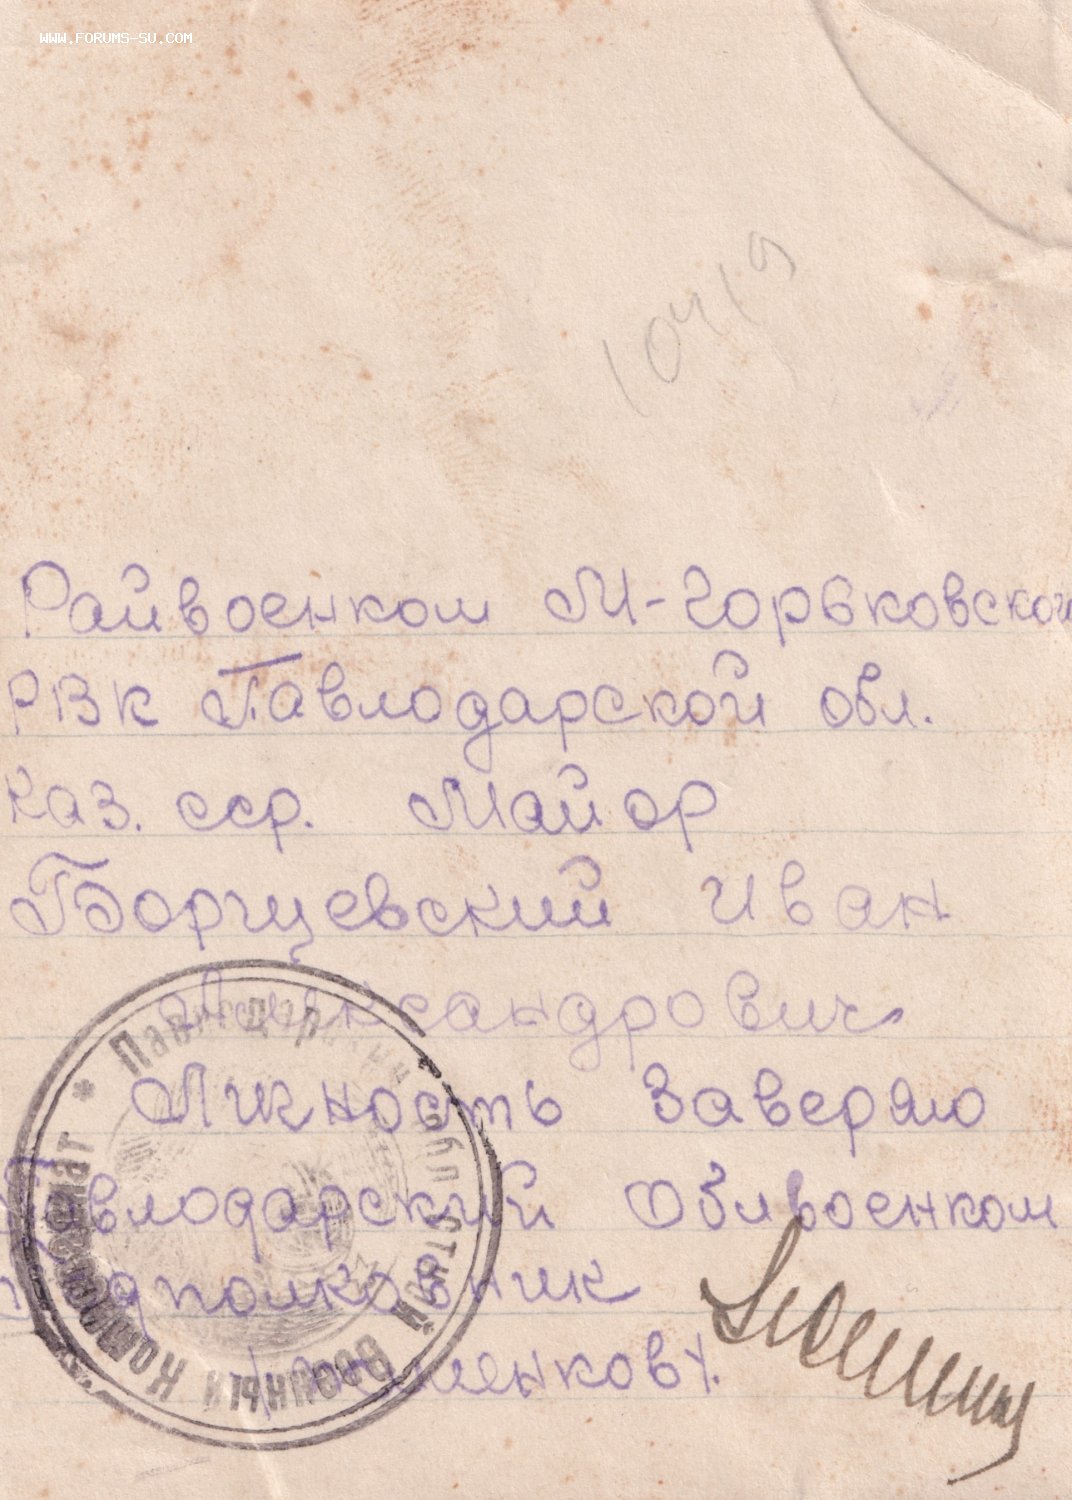 WWW.FORUMS-SU.COM
10419
Райвоенком М-Горьковского
РВК Павлодарской обл.
Каз. сср. Майор
Борщевский Иван
Александрович
Личность Заверяю
Павлодарский Облвоенком
подполковник
* Павлодарский Областной Военный Комиссариат